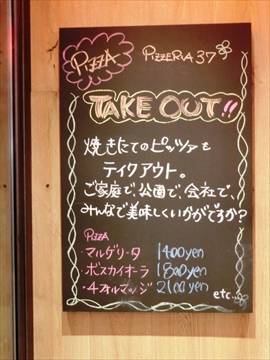 PIZZA
PIZZERIA 37
TAKE OUT!!
焼きたてのピッツァを
テイクアウト。
ご家庭で、公園で、会社で、
みんなで美味しいいかがですか?
PIZZA
・マルゲリータ 1400yen
・ボスカイオーラ 1800yen
・4フォルマッジ 2100yen
etc...